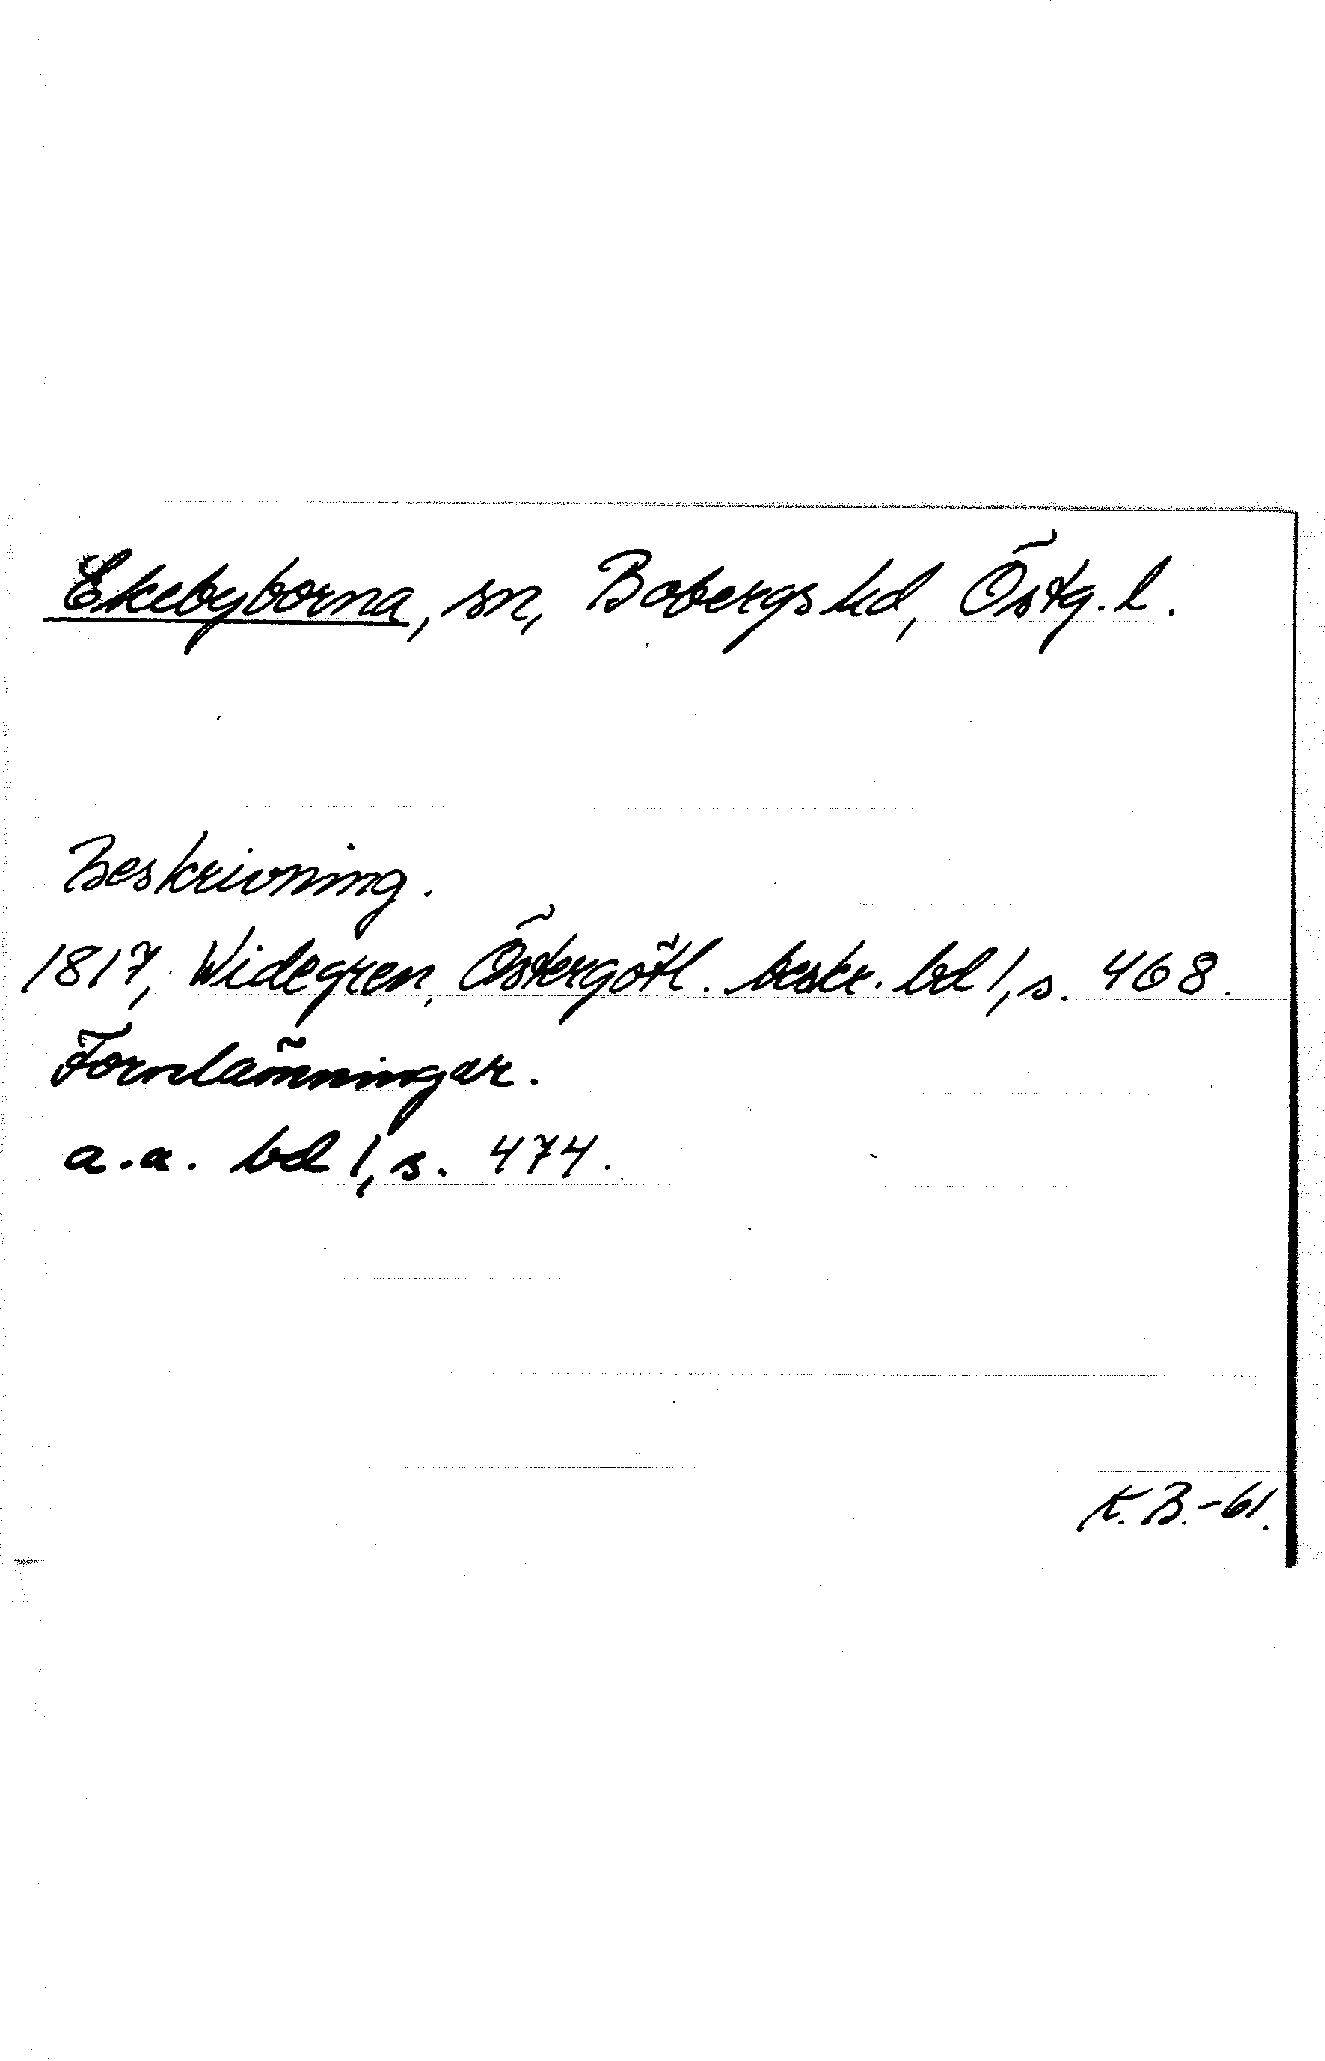 Ekebyborna, sn, Bobergs hd, Östg. l.
Beskrivning.
1817, Widegren, Östergötl. beskr. bd 1, s. 468.
Fornlämningar.
a.a. bd 1, s. 474.
K.B.-61.